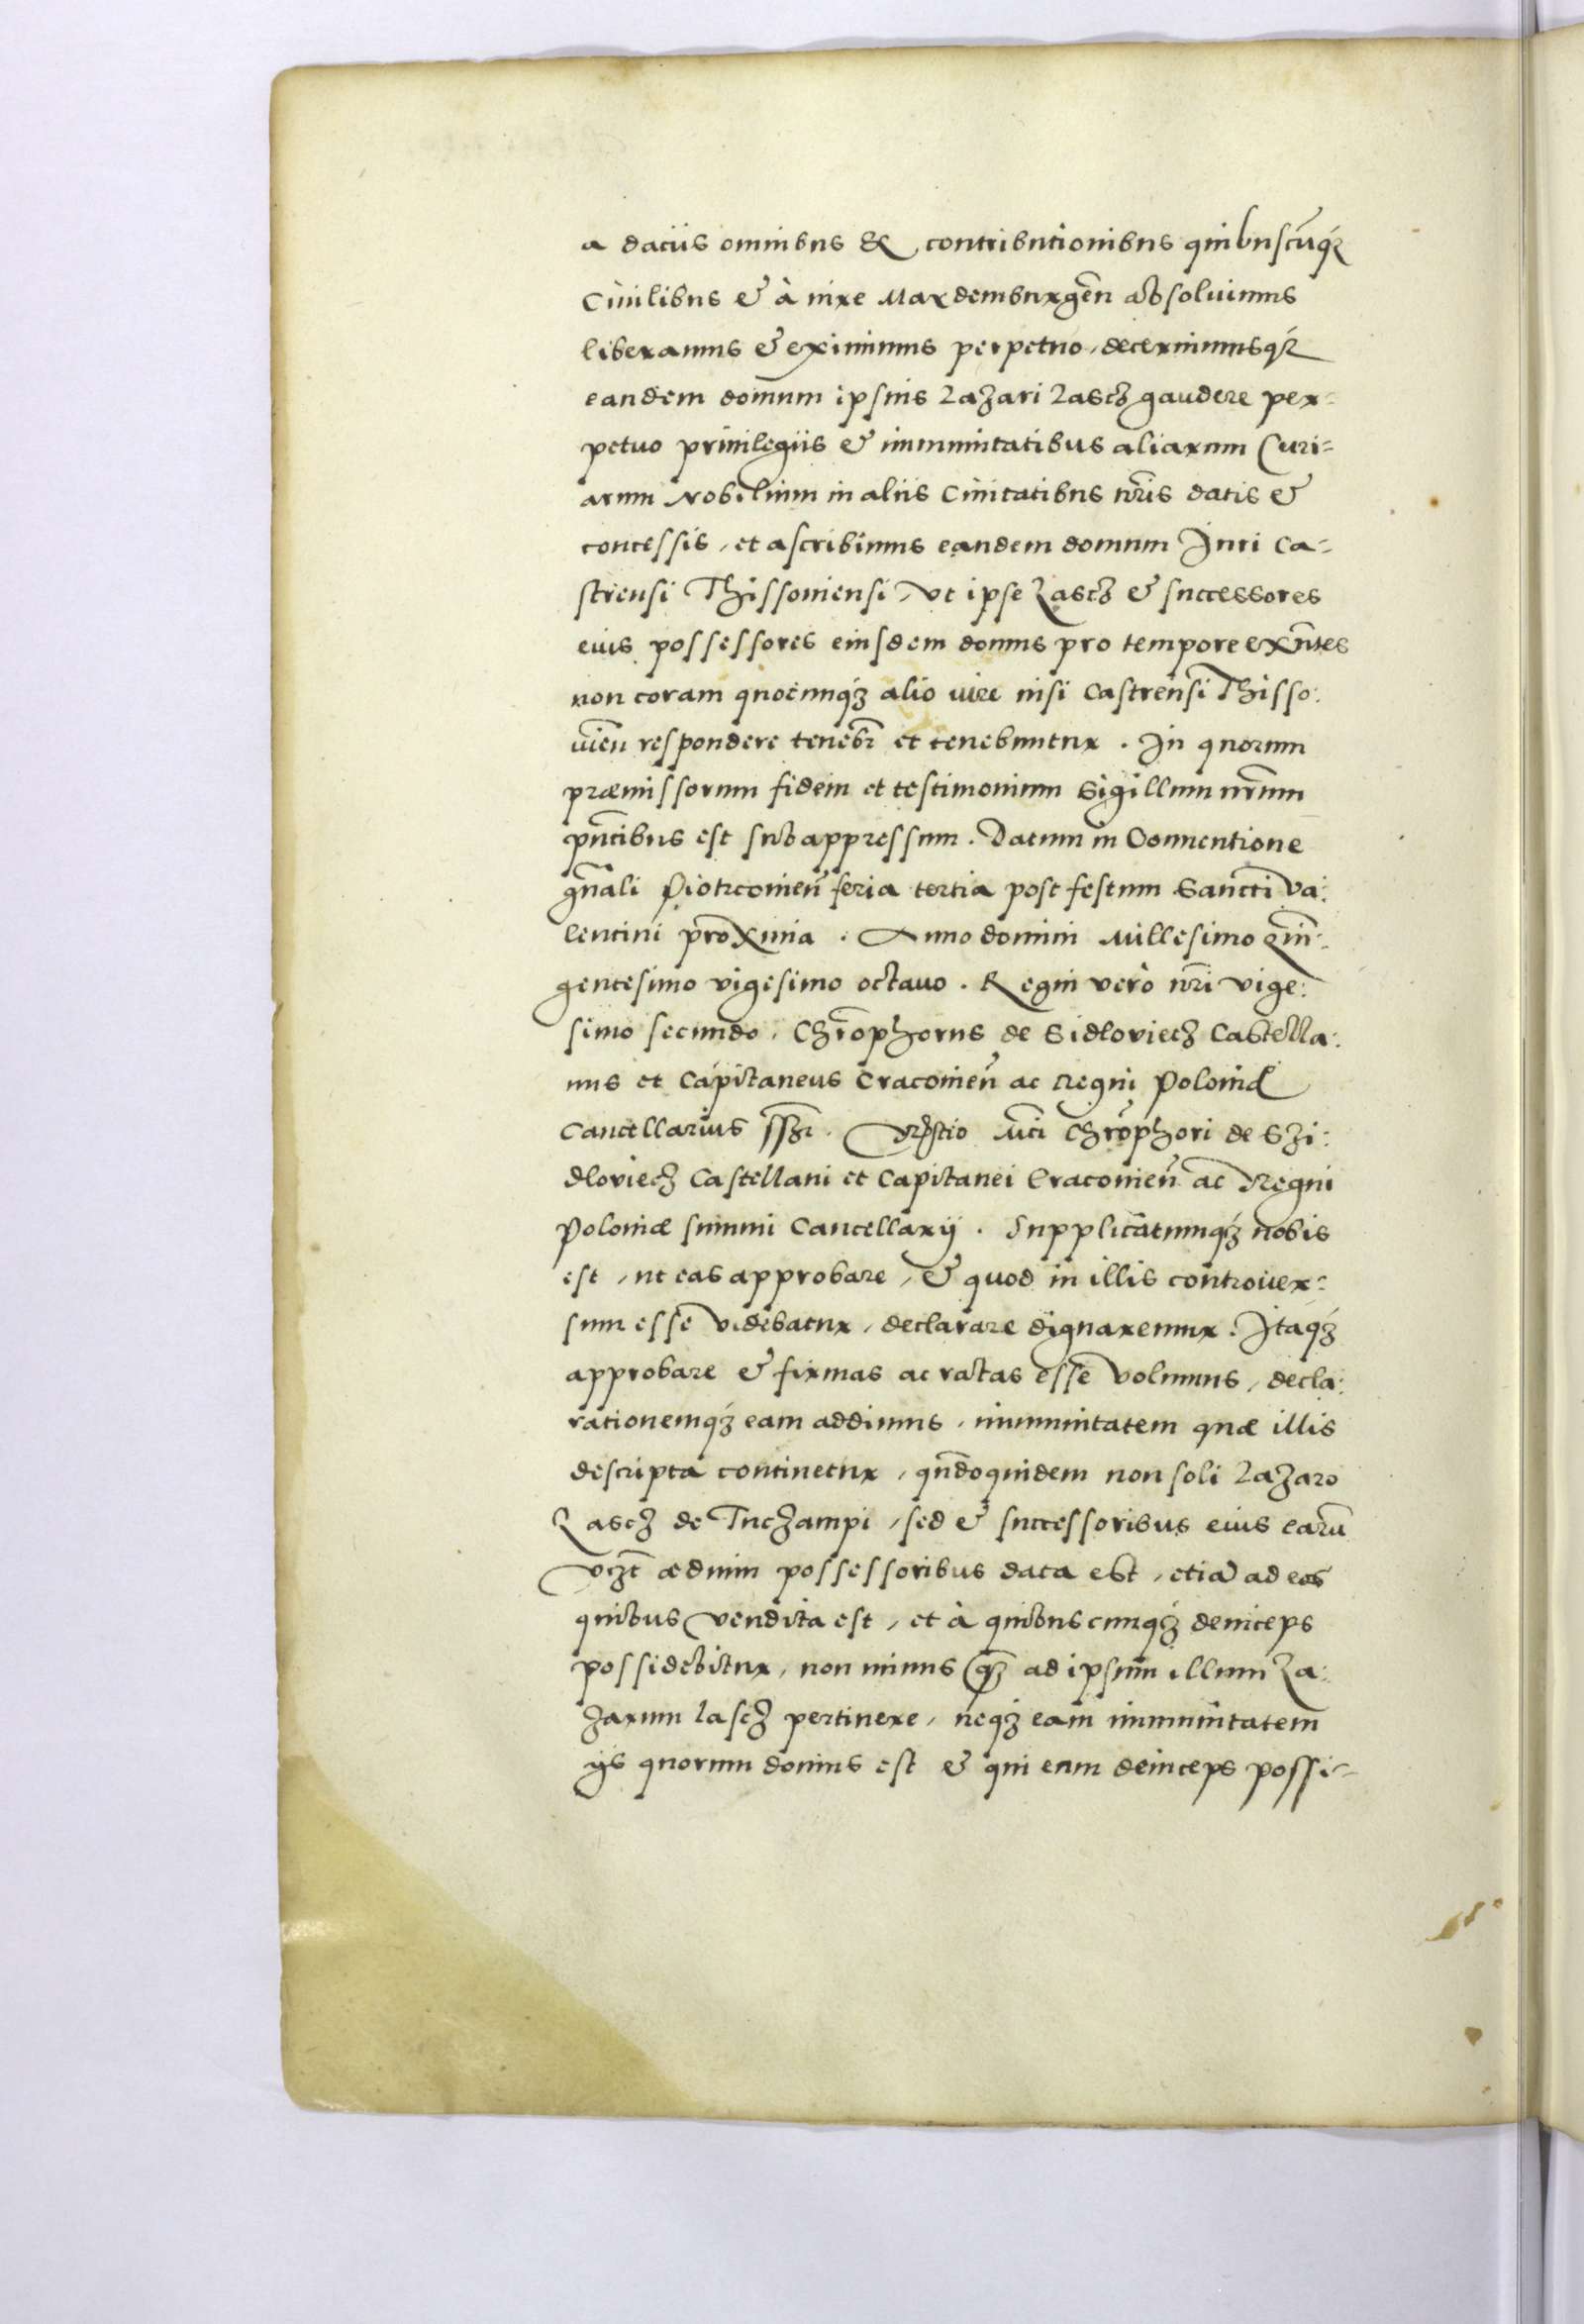 a daciis omnibus & contributionibus quibuscūq3
Ciuilibus & à iure Maxdemburgēn absoluimus
liberamus & eximimus perpetuo, decernimusq3
eandem domum ipsius Lazari Lasch gaudere per-
petuo priuilegiis & immunitatibus aliarum Curi-
arum Nobilium in aliis Ciuitatibus nr̄is datis &
concessis, et ascribimus eandem domum Iuri Ca-
strensi Thissouiensi, vt ipse Lasch & successores
eius possessores eiusdem domus pro tempore exn̄tes
non coram quocunq3 alio iure nisi Castrensi Thisso:
uień respondere tenebr̄ et tenebuntur. In quorum
præmissorum fidem et testimonium Sigillum nr̄um
pn̄tibus est subappressum. Datum in Conuentione
gn̄ali Piotrcouień feria tertia post festum Sancti Va:
lentini proxima. Anno domini Millesimo Quin:
gentesimo vigesimo octauo. Regni vero nr̄i vige:
simo secundo. Chrōphorus de Sidloviecz Castella:
nus et Capitaneus Cracouień ac Regni Poloniæ
Cancellarius sszt. Rēlatio Mci Chrōphori de Szi:
dloviecz Castellani et Capitanei Cracouień ac Regni
Poloniæ summi Cancellarij. Supplicatumq3 nobis
est, ut eas approbare, & quod in illis controuer-
sum esse videbatur, declarare dignaremur. Itaq3
approbare & firmas ac ratas esse volumus, decla:
rationemq3 eam addimus, immunitatem quæ illis
descripta continetur, qn̄doquidem non soli Lazaro
Lasch de Tuczampi, sed & successoribus eius earū
vczt ædium possessoribus data est, etiā ad eos
quibus vendita est, et à quibuscunq3 deinceps
possidebitur, non minus q3 ad ipsum illum La:
zarum Lasch pertinere, neq3 eam immunitatem
ijs quorum domus est & qui eam deinceps possi-